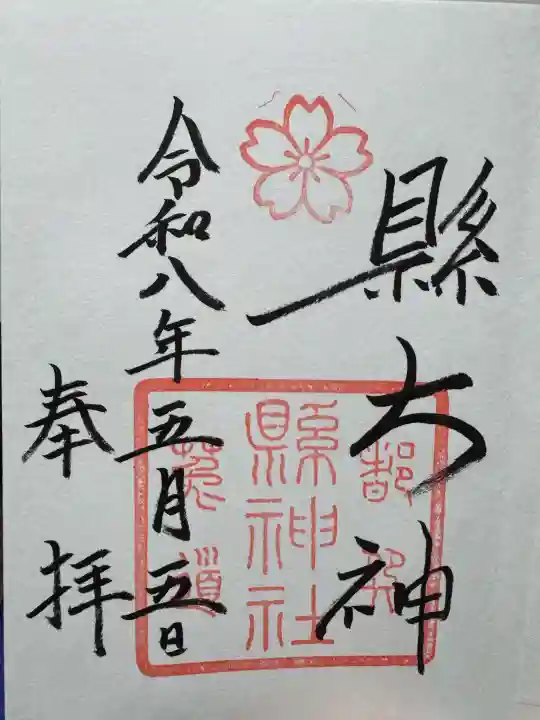 縣大神
令和八年五月五日
奉拝
縣神社